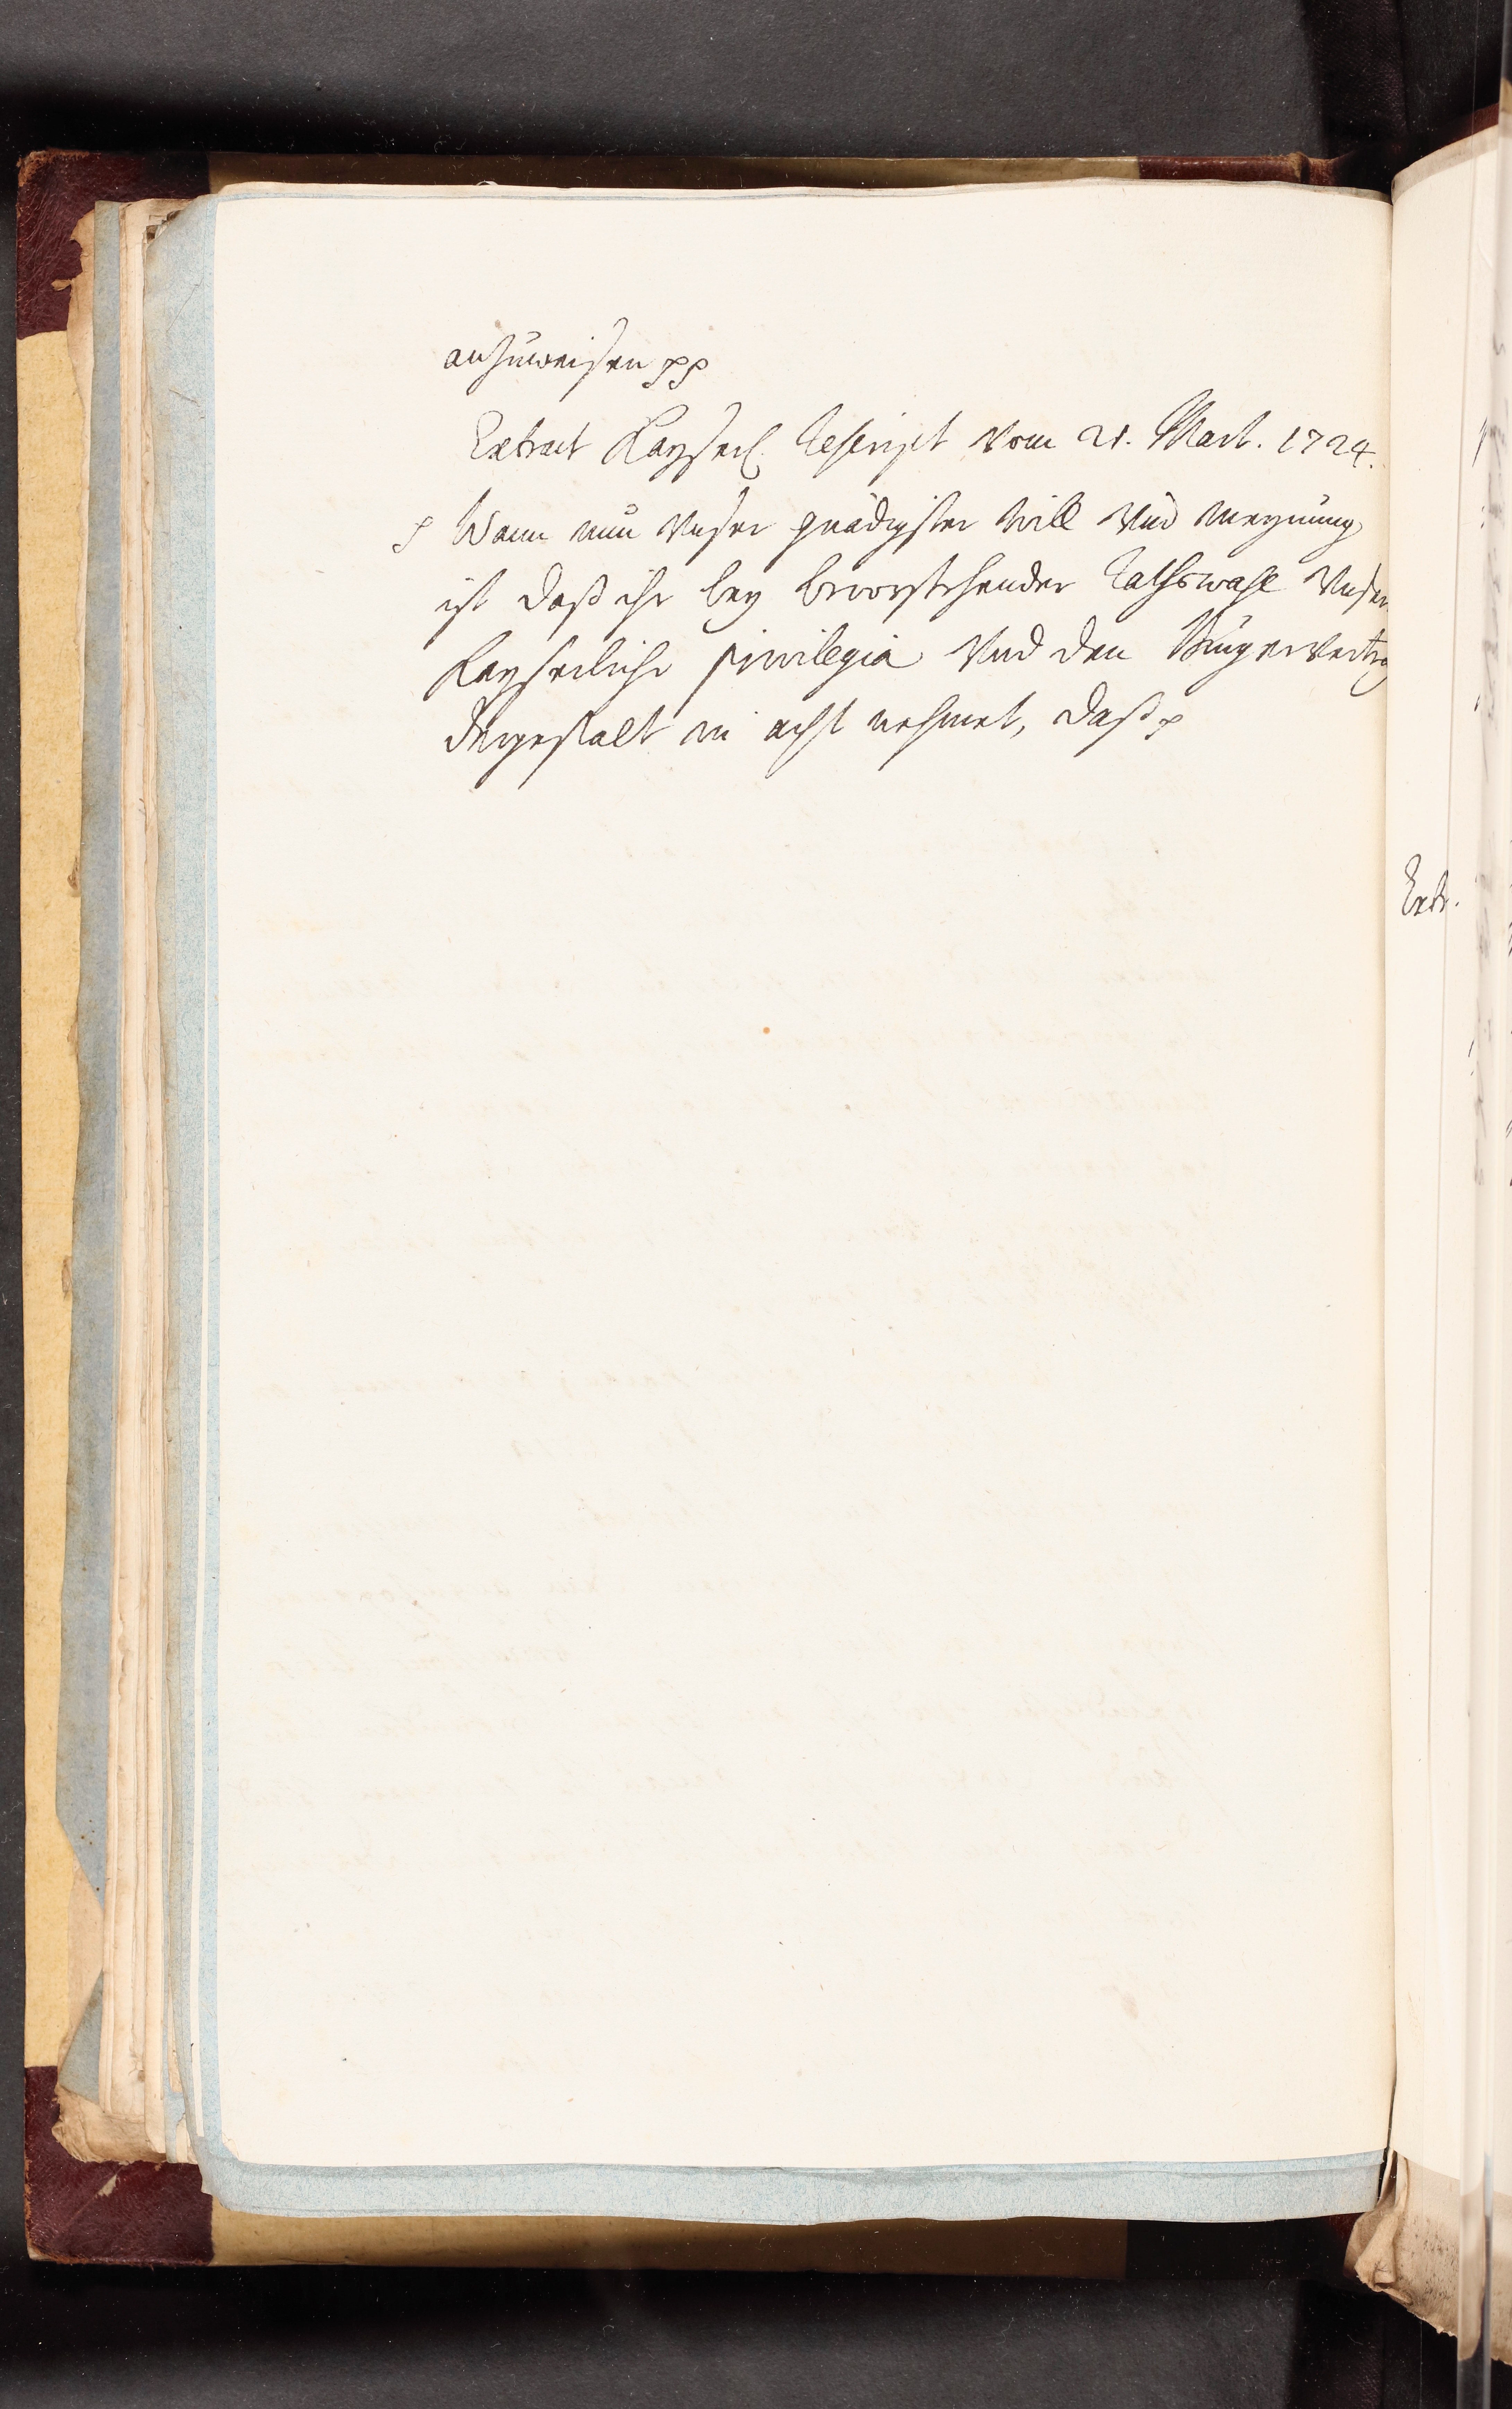 anzuweisen pp
Extract Kayserl. Rescript vom 21. Mart. 1724.
p Wann nun Unser gnädigster Will und Meynung
ist daß ihr bey bevorstehender Rathswahl Unsere
Kayserliche privilegia und den Bürgervertrag
dergestalt in acht nehmet, daß p
Extr.